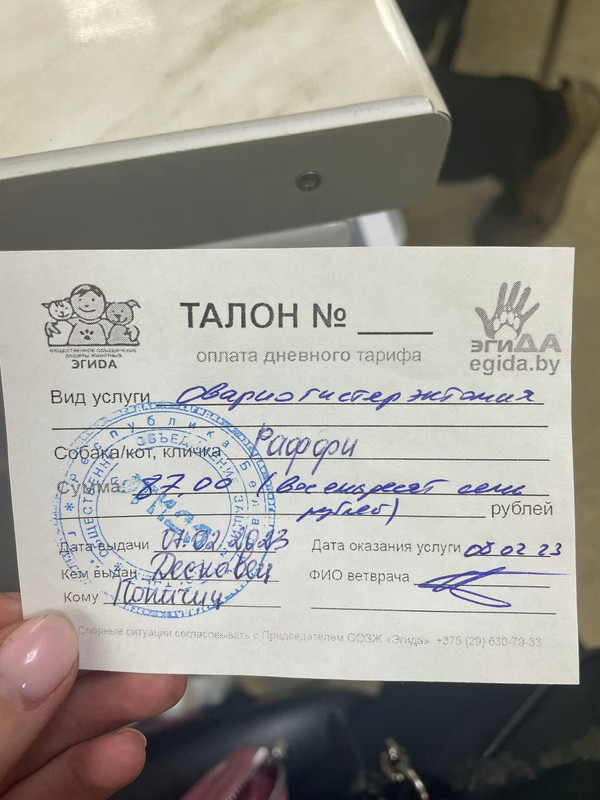 ТАЛОН № ____
ОБЩЕСТВЕННОЕ ОБЪЕДИНЕНИЕ
ЗАЩИТЫ ЖИВОТНЫХ
ЭГИДА
ЭГИДА
egida.by
оплата дневного тарифа
Вид услуги Овариогистерэктомия
Собака/кот, кличка Раффи
Сумма: 87,00 (восемьдесят семь
рублей) рублей
Дата выдачи 07.02.2023 Дата оказания услуги 08 02 23
Кем выдан Десковец ФИО ветврача
Кому
Спорные ситуации согласовывать с Председателем СОЗЖ «Эгида» +375 (29) 630-79-33